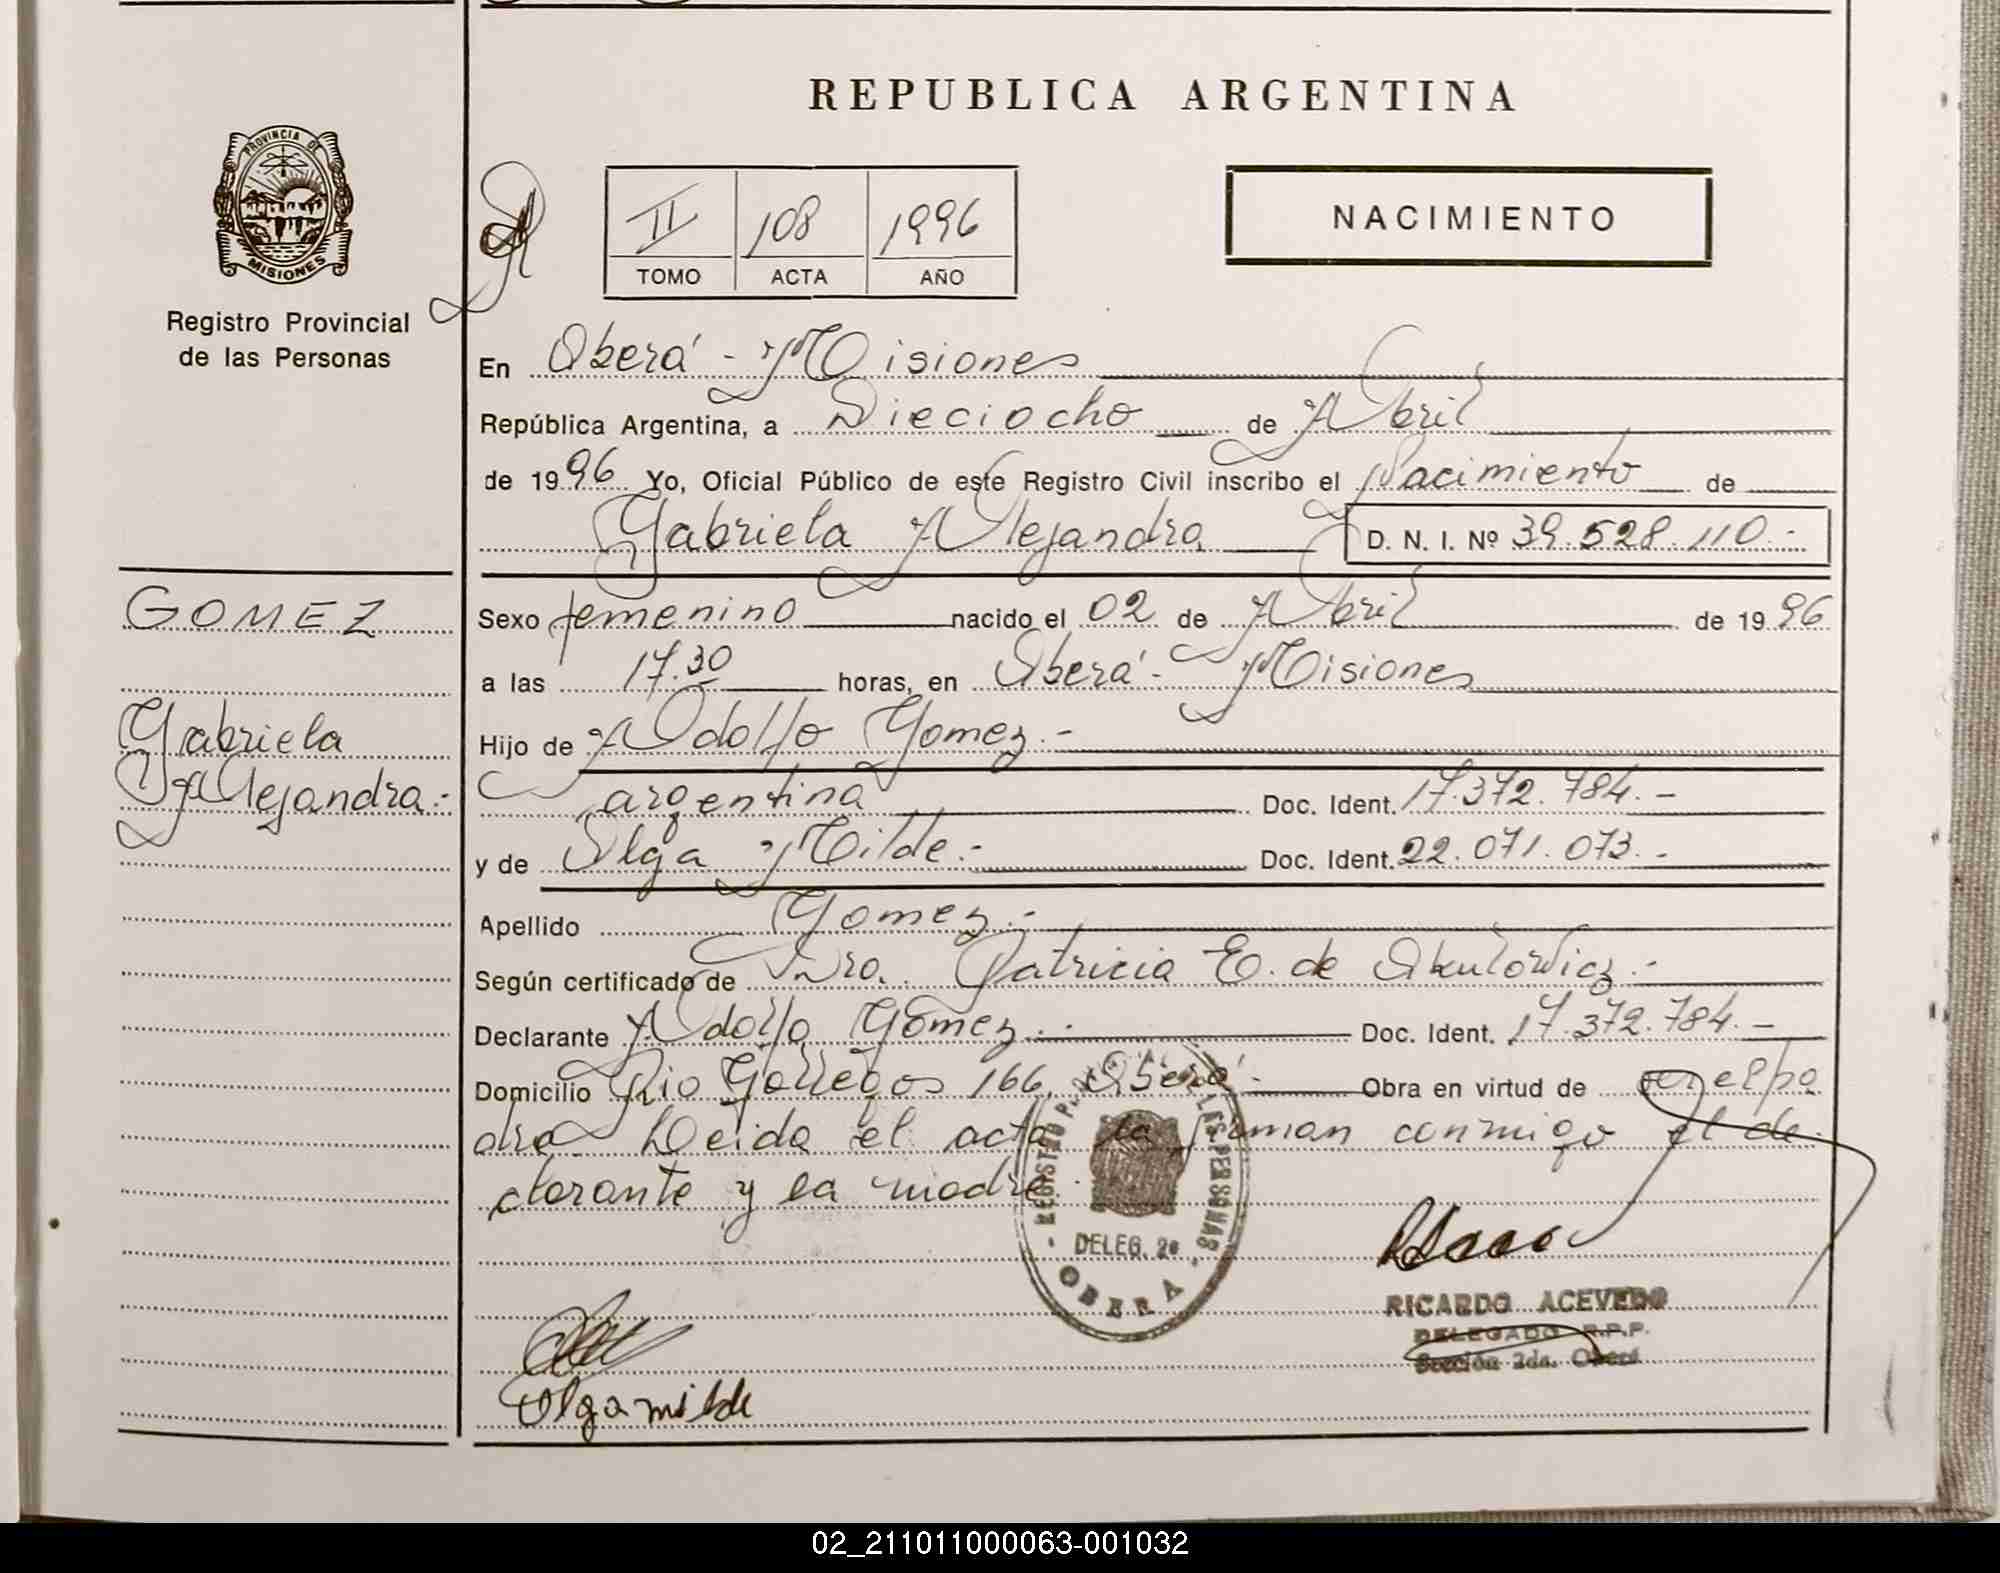 REPUBLICA ARGENTINA
PROVINCIA DE
MISIONES
Registro Provincial
de las Personas
II 108 1996
TOMO ACTA AÑO
NACIMIENTO
En Oberá - Misiones
República Argentina, a Dieciocho de Abril
de 1996 Yo, Oficial Público de este Registro Civil inscribo el Nacimiento de
Gabriela Alejandra D. N. I. Nº 39.528.110.-
GOMEZ
Gabriela
Alejandra.-
Sexo femenino nacido el 02 de Abril de 1996
a las 17.30 horas, en Oberá - Misiones
Hijo de Adolfo Gomez.-
argentina Doc. Ident. 17.372.784.-
y de Olga Milde.- Doc. Ident. 22.071.073.-
Apellido Gomez.-
Según certificado de Dra. Patricia E. de
Declarante Adolfo Gomez.- Doc. Ident. 17.372.784.-
Domicilio Rio Gallegos 166, Oberá.- Obra en virtud de ser el pa
dre Leida el acta la firman conmigo el de
clarante y la madre
REGISTRO P. DE LAS PERSONAS
DELEG. 2ª
OBERA
RICARDO ACEVEDO
DELEGADO R.P.P.
Sección 2da. Oberá
Olga milde
02_211011000063-001032